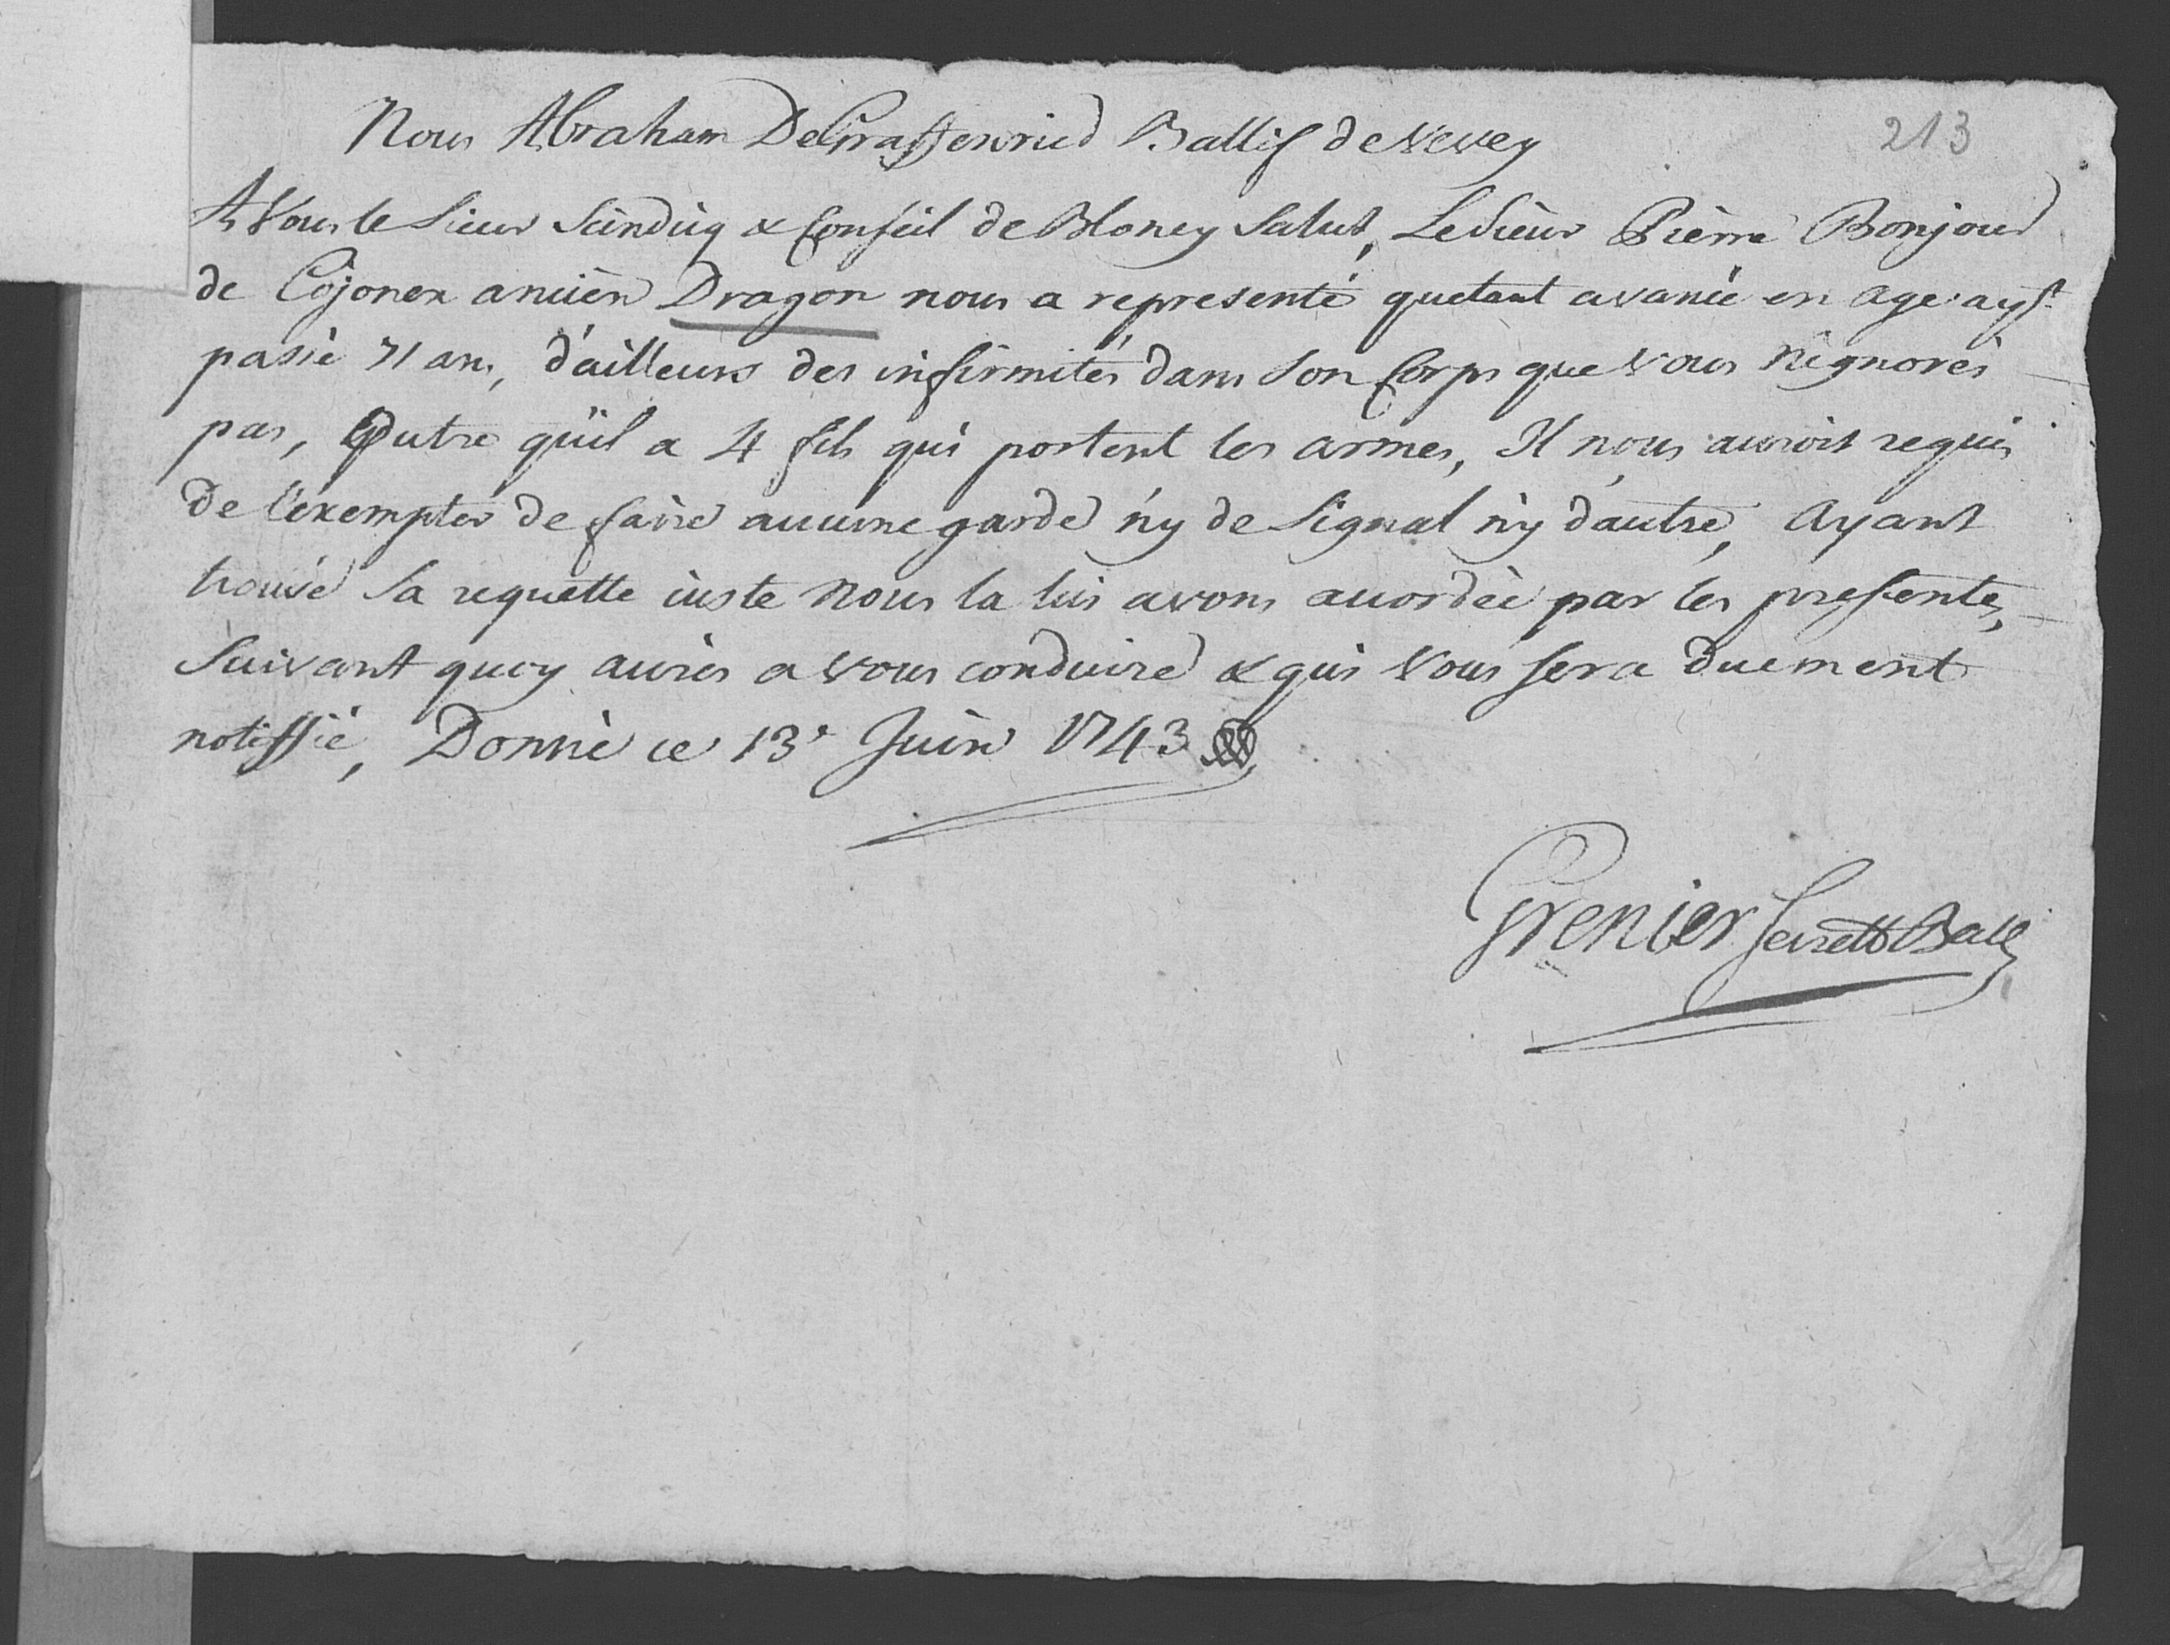 213
Nous Abraham DeGraffenried Ballif de Vevey
A Vous le Sieur Scindiq & Conseil de Bloney Salut, Le Sieur Pierre Bonjour
de Cojonex ancien Dragon nous a representé quetant avancé en age ayt
passé 71 ans, d'ailleurs des infirmités dans son Corps que vous n'ignorés
pas, Outre qu'il a 4 fils qui portent les armes, Il nous auroit requis
de l'exempter de faire aucune garde n'y de Signal n'y d'autre, Ayant
trouvé sa requette iuste Nous la lui avons accordée par les presentes,
Suivant quoy aurés a vous conduire & qui vous sera duement
notiffié, Donné ce 13e Juin 1743
Grenier Secrett Ball